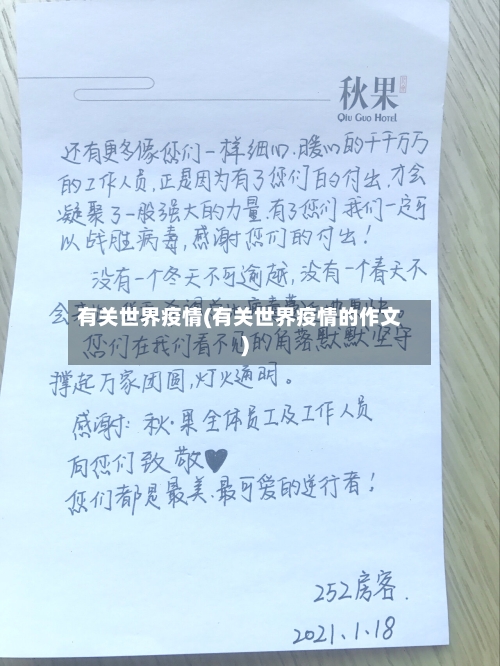 秋果
Qiu Guo Hotel
还有更多像您们一样细心、暖心的千千万万
的工作人员,正是因为有了您们的付出,才会
凝聚了一股强大的力量,有了您们我们一定可
以战胜病毒,感谢您们的付出!
没有一个冬天不可逾越,没有一个春天不
会
有关世界疫情(有关世界疫情的作文
)
您们在我们看不见的角落默默坚守
撑起万家团圆,灯火通明。
感谢:秋·果全体员工及工作人员
向您们致敬♥
您们都是最美、最可爱的逆行者!
252房客.
2021.1.18